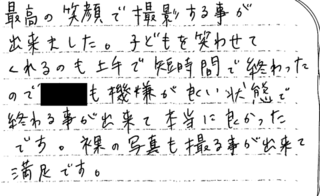 最高の笑顔で撮影する事が
出来ました。子どもを笑わせて
くれるのも上手で短時間で終わった
ので も機嫌が良い状態で
終わる事が出来て本当に良かった
です。裸の写真も撮る事が出来て
満足です。